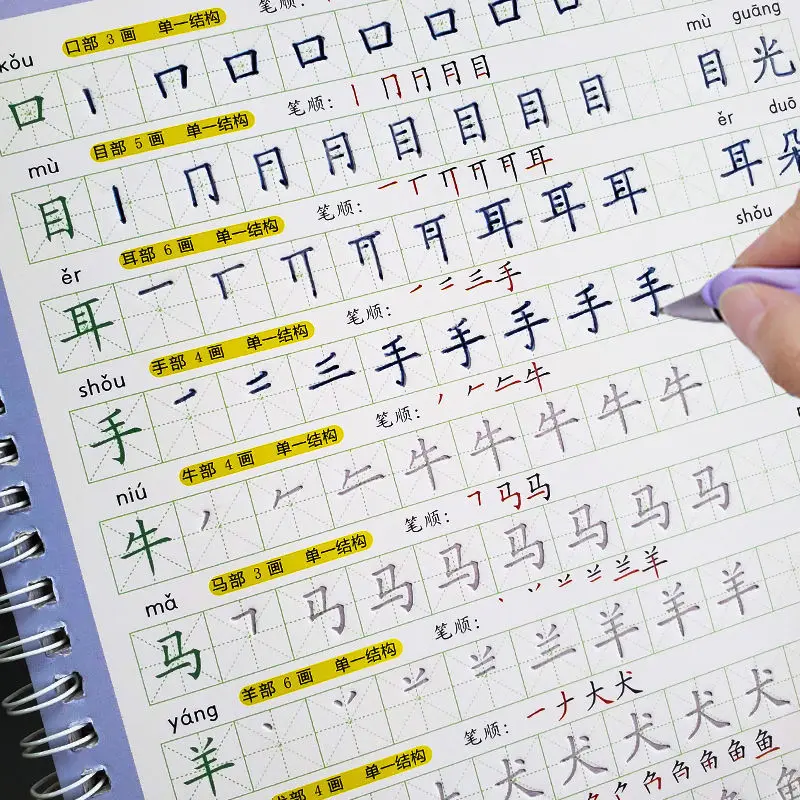 笔顺:
kǒu 口部 3 画 单一结构
口 丨 冂 口 口 口 口 口 口
mù 目部 5 画 单一结构 笔顺: 丨 冂 月 目 mù guāng
目 丨 冂 月 目 目 目 目 目光
ěr 耳部 6 画 单一结构 笔顺: 一 丅 丌 耳 ěr duō
耳 一 丅 丌 耳 耳 耳 耳朵
shǒu 手部 4 画 单一结构 笔顺: ㇒ 二 三 手 shǒu
手 ㇒ 二 三 手 手 手 手 手
niú 牛部 4 画 单一结构 笔顺: 丿 𠂉 牛
牛 丿 𠂉 牛 牛 牛 牛 牛
mǎ 马部 3 画 单一结构 笔顺: ㇕ 马 马
马 ㇕ 马 马 马 马 马 马 马
yáng 羊部 6 画 单一结构 笔顺: 丶 丷 兰 羊
羊 丶 丷 兰 羊 羊 羊
犬部 4 画 单一结构 笔顺: 一 ナ 大 犬
犬 犬 犬 犬 犬
鱼